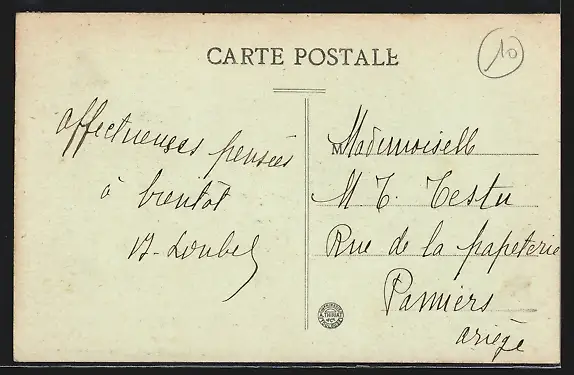 CARTE POSTALE
10
affectueuses pensées
à bientôt
Mademoiselle
M T. Testu
Rue de la papeterie
Pamiers
Ariège